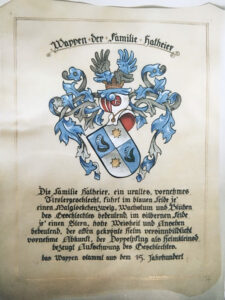 Wappen der Familie Hatheier.
Die Familie Hatheier, ein uraltes, vornehmes
Tirolergeschlecht, führt im blauen Felde je
einen Maiglöckchenzweig, Wachstum und Blühen
des Geschlechtes bedeutend, im silbernen Felde
je einen Stern, hohe Weisheit und Ansehen
bedeutend, der offen gekrönte Helm versinnbildlicht
vornehme Abkunft, der Doppelflug als Helmkleinod
bezeugt Aufschwung des Geschlechtes.
das Wappen stammt aus dem 15. Jahrhundert